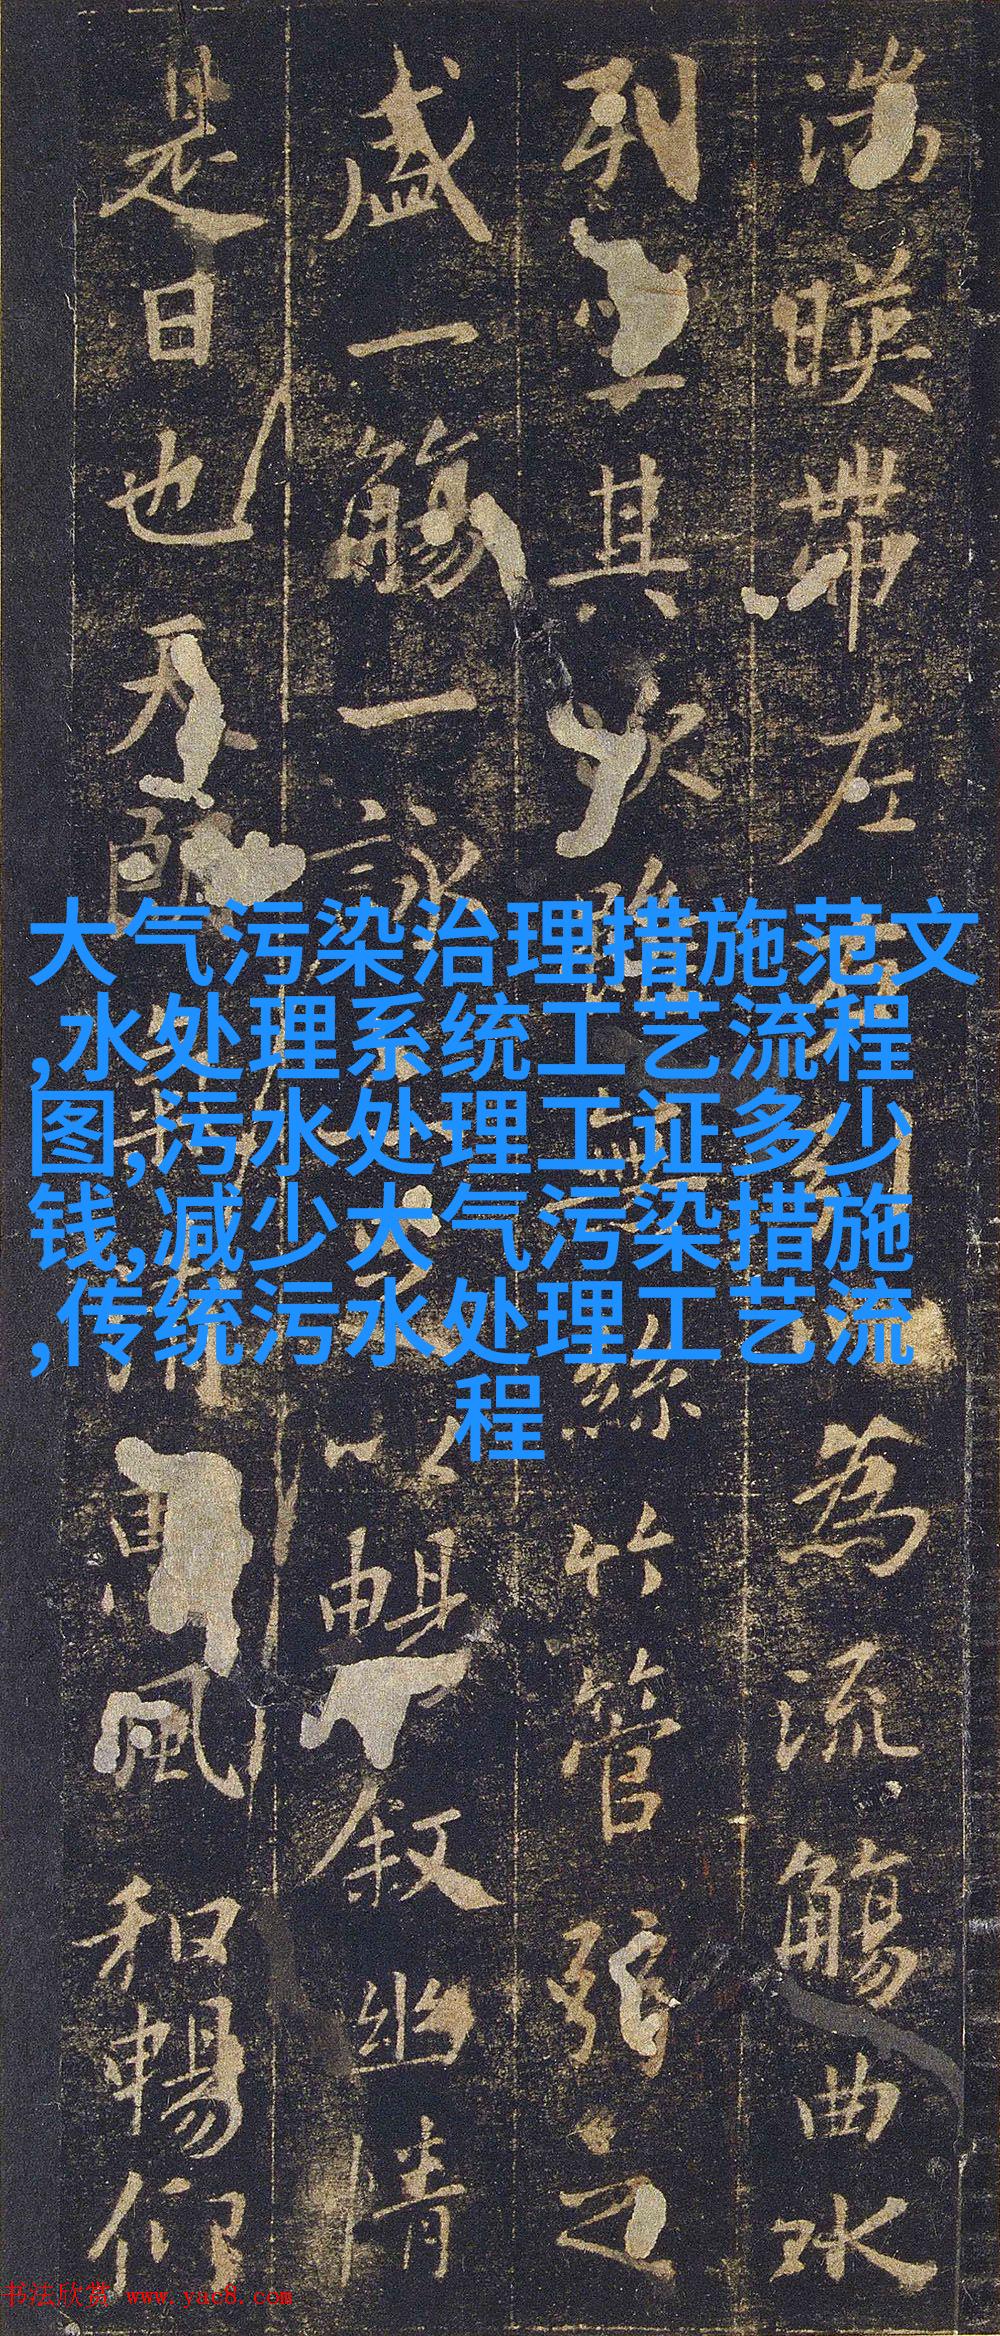 大气污染治理措施范文
,水处理系统工艺流程
图,污水处理工证多少
钱,减少大气污染措施
,传统污水处理工艺流
程
湍暎帶左右引以為流觴曲水
列坐其次雖無絲竹管弦之
盛一觴一詠亦足以暢敘幽情
是日也天朗氣清惠風和暢仰
书法欣赏 www.yac8.com